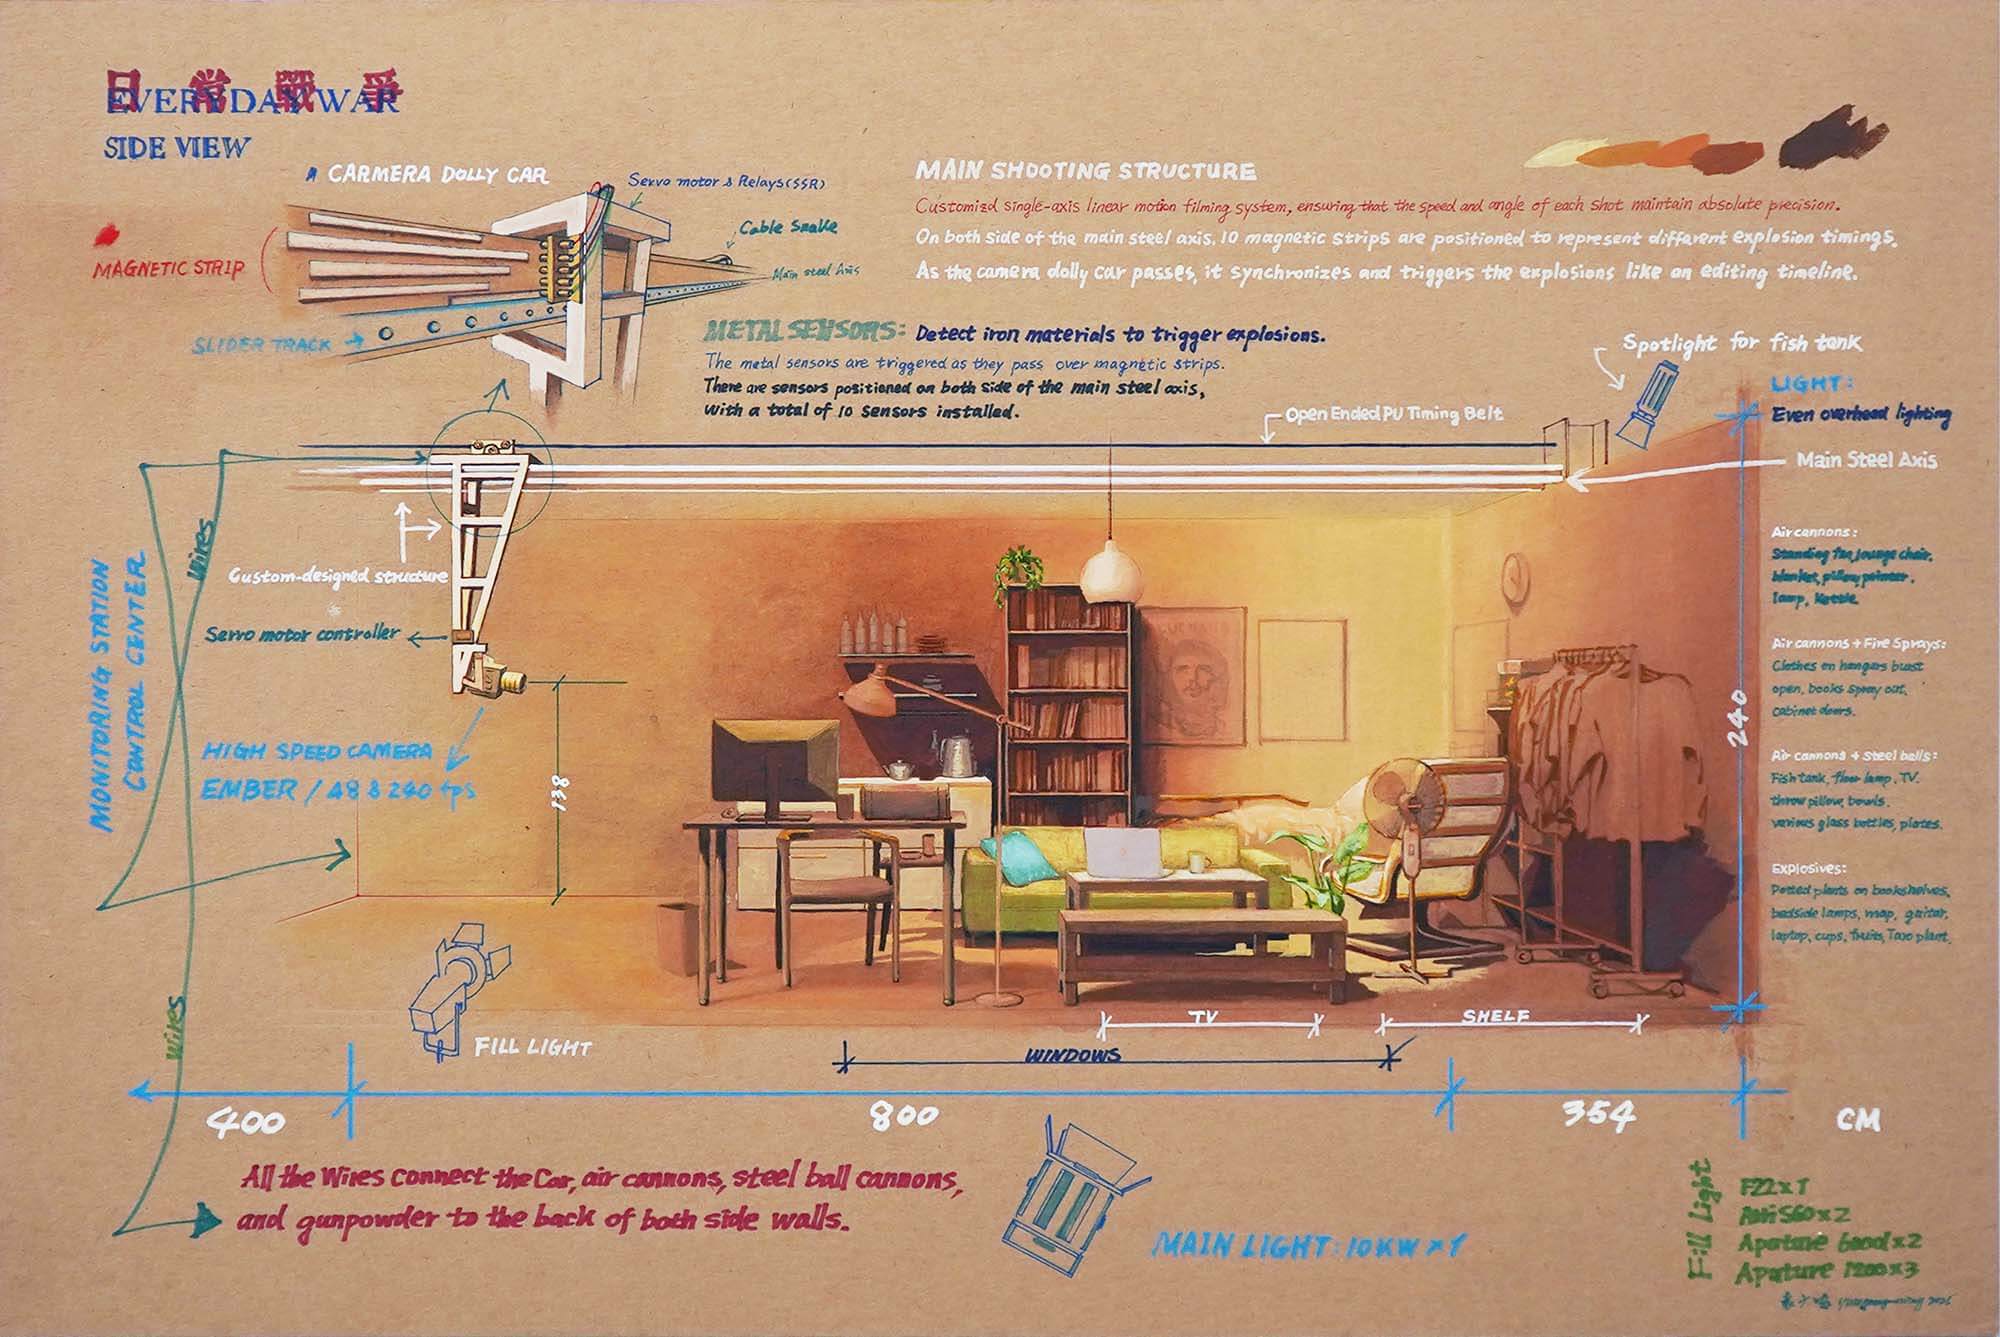 日常戰爭
EVERYDAY WAR
SIDE VIEW
CARMERA DOLLY CAR
Servo motor & Relays(SSR)
Cable Snake
Main steel Axis
MAGNETIC STRIP
SLIDER TRACK
MAIN SHOOTING STRUCTURE
Customizd single-axis linear motion filming system, ensuring that the speed and angle of each shot maintain absolute precision.
On both side of the main steel axis, 10 magnetic strips are positioned to represent different explosion timings.
As the camera dolly car passes, it synchronizes and triggers the explosions like an editing timeline.
METAL SENSORS: Detect iron materials to trigger explosions.
The metal sensors are triggered as they pass over magnetic strips.
There are sensors positioned on both side of the main steel axis,
with a total of 10 sensors installed.
Spotlight for fish tank
LIGHT:
Even overhead lighting
Open Ended PU Timing Belt
Main Steel Axis
Wires
Custom-designed structure
Servo motor controller
MONITORING STATION
CONTROL CENTER
HIGH SPEED CAMERA
EMBER / 48 & 240 fps
138
240
Air cannons:
Standing fan, lounge chair,
blanket, pillow, printer,
lamp, Kettle
Air cannons + Fire Sprays:
Clothes on hangers burst
open, books spray out,
cabinet doors.
Air cannons + Steel balls:
Fish tank, floor lamp, TV.
throw pillow, bowls.
various glass bottles, plates.
Explosives:
Potted plants on bookshelves,
bedside lamps, map, guitar,
laptop, cups, fruits, Taro plant.
Wires
FILL LIGHT
TV
SHELF
WINDOWS
400
800
354
CM
All the Wires connect the Car, air cannons, steel ball cannons,
and gunpowder to the back of both side walls.
MAIN LIGHT: 10KW x 1
Fill Light
F22 x 1
S60 x 2
Aputure 600d x 2
Aputure 1200 x 3